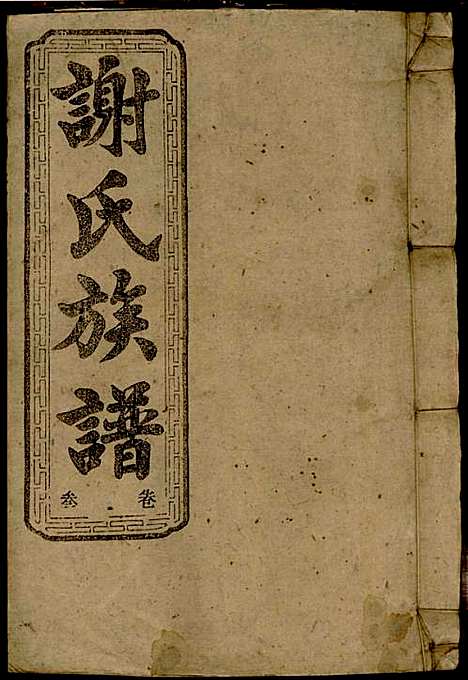 謝氏族譜
卷叁